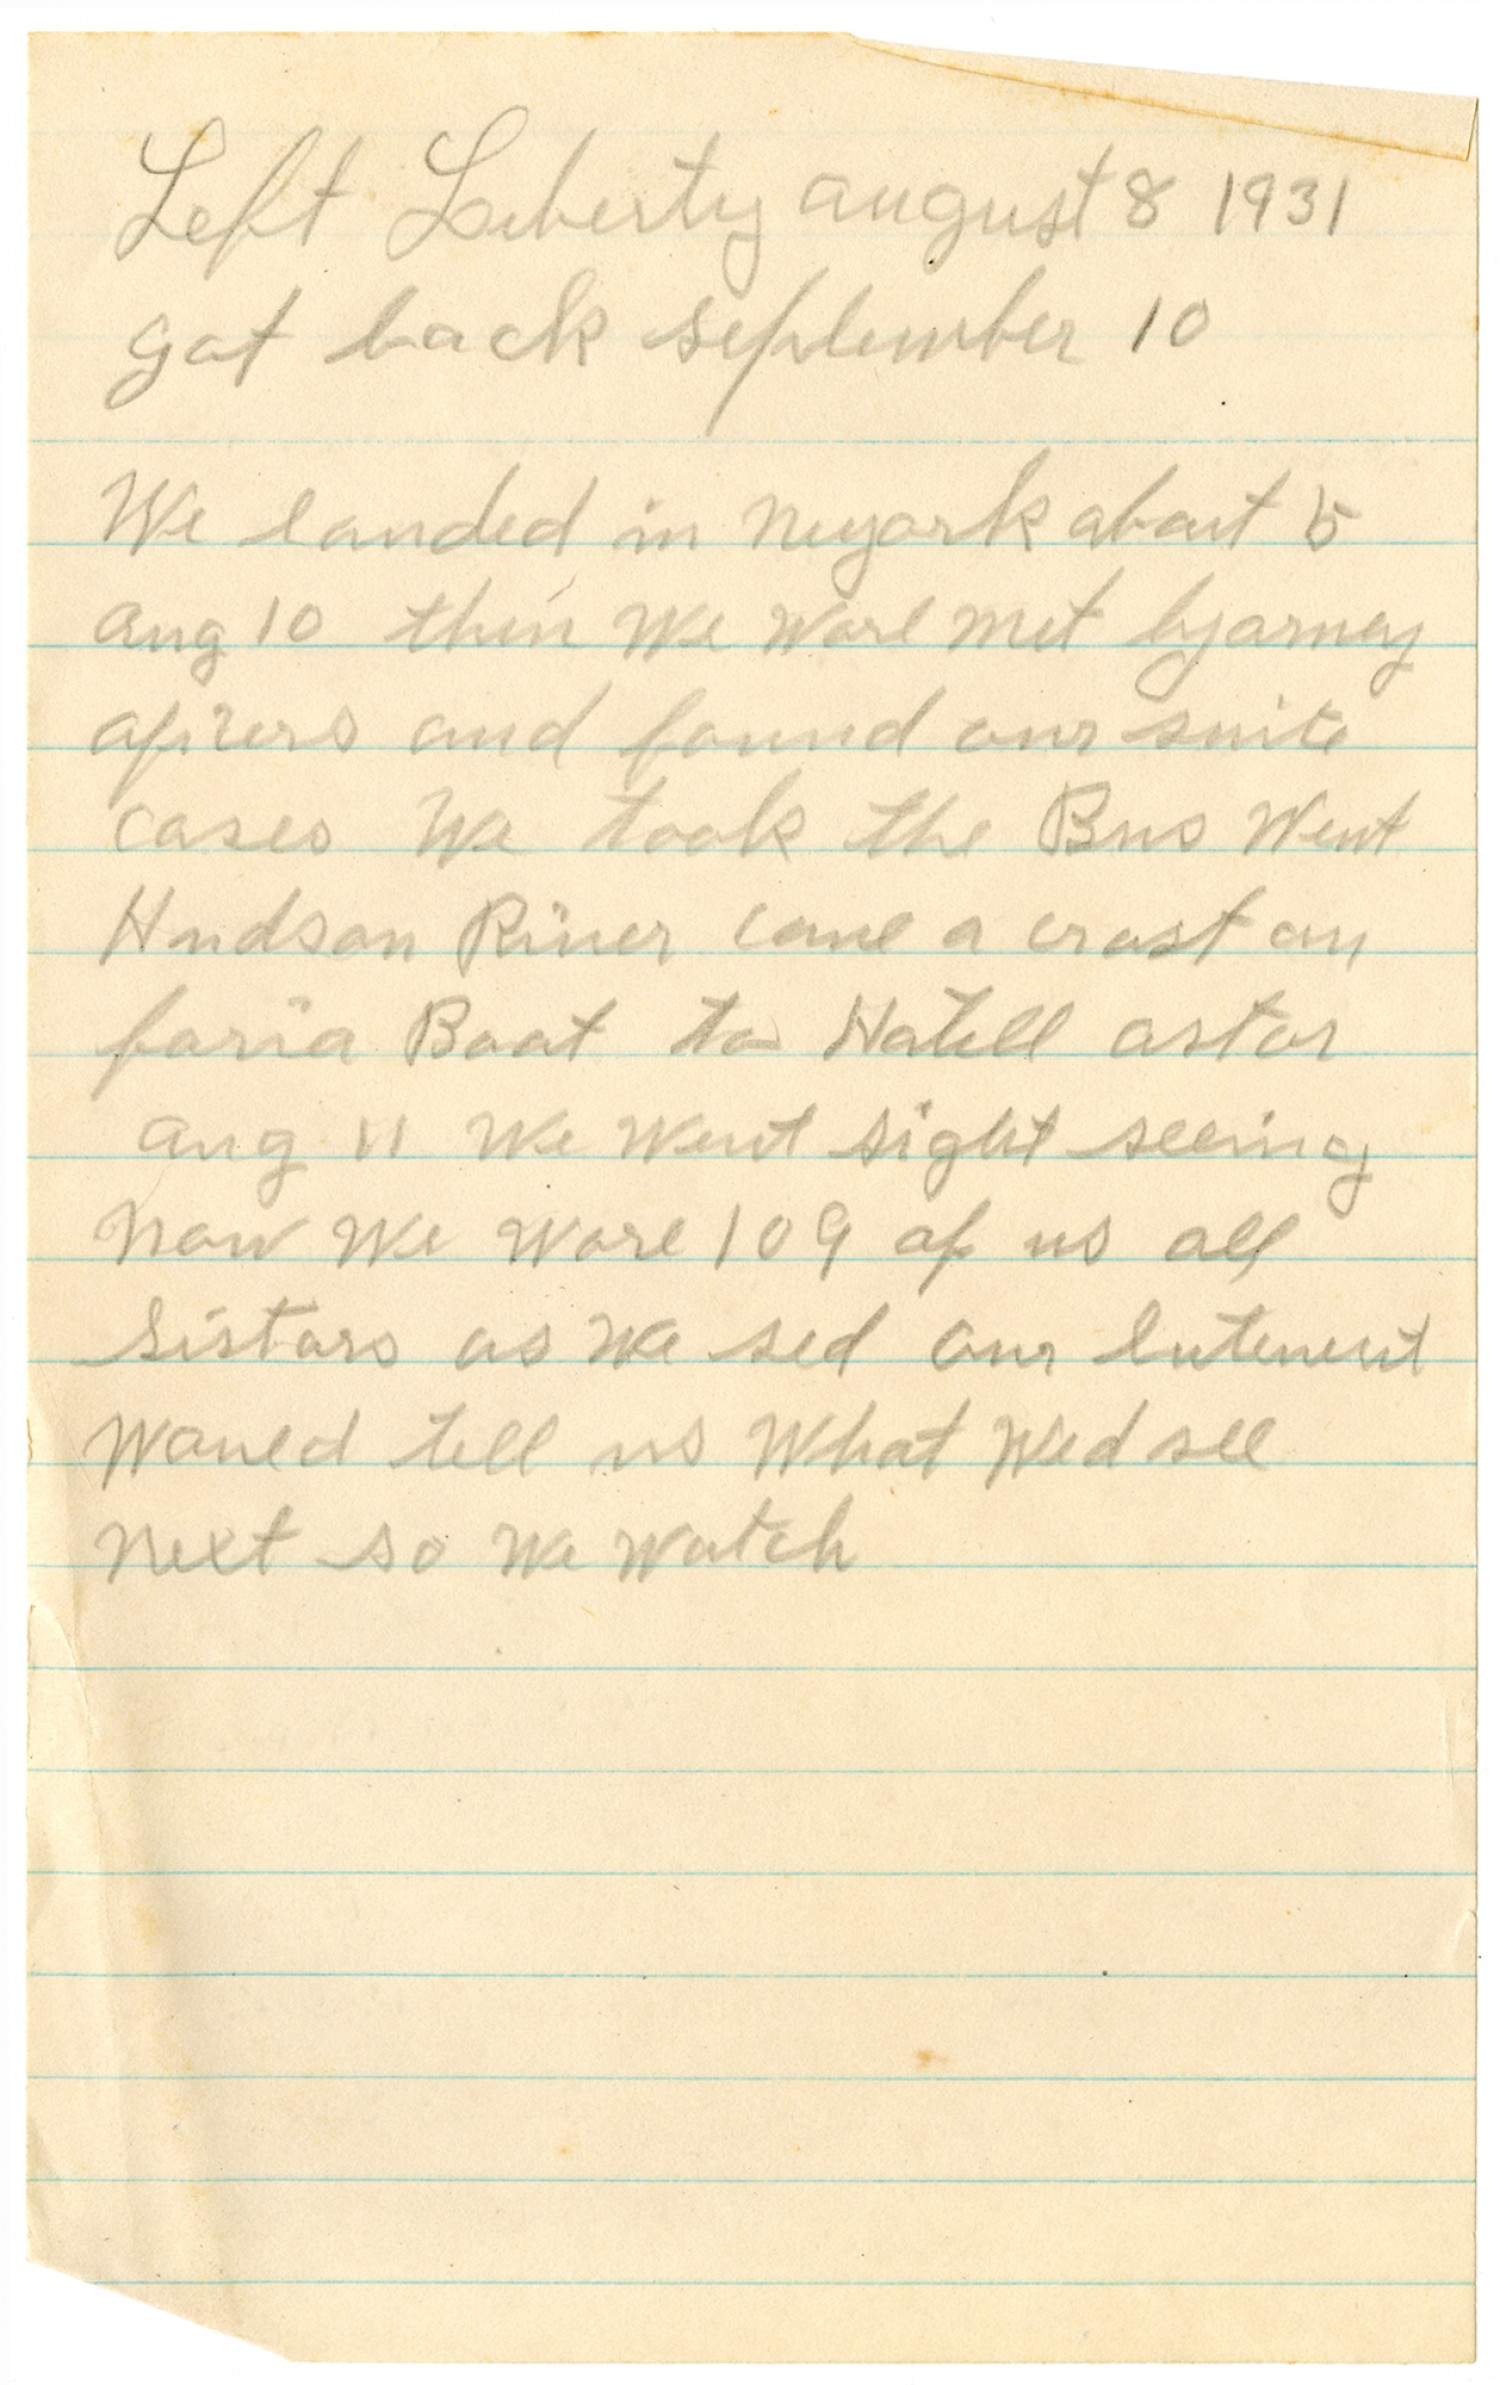 Left Leberty august 8 1931
got back september 10
We landed in Neyork about 5
aug 10 then We Ware met by army
aficers and found our suite
cases We took the Bus Went
Hudson River came a crost on
faria Boat to Hatell astor
aug 11 We Went sight seeing
Now We Ware 109 of us all
Sistars as We sed our lutenent
Wou'ed tell us What Wed see
Next so We Watch